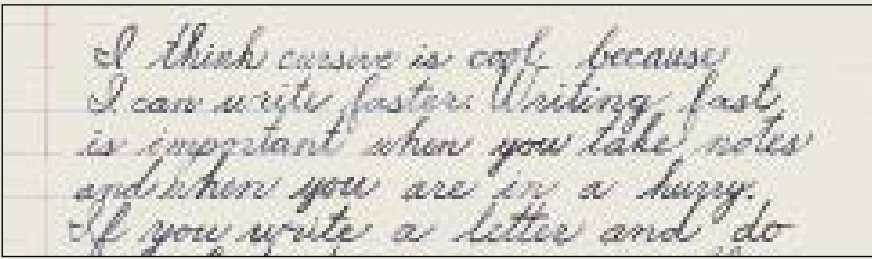 I think cursive is cool because
I can write faster. Writing fast
is important when you take notes
and when you are in a hurry.
If you write a letter and do